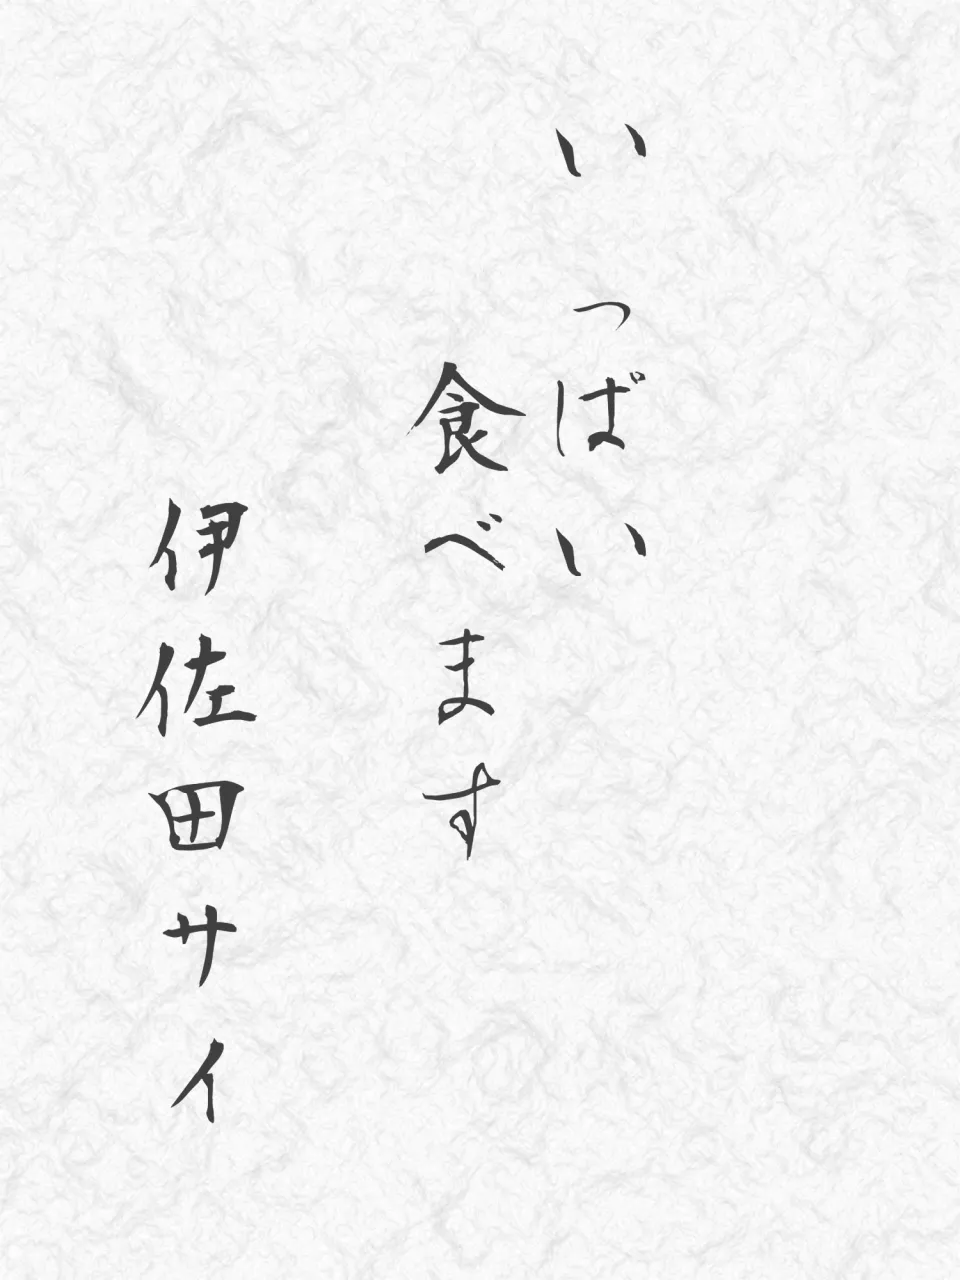 いっぱい
食べます
伊佐田サイ